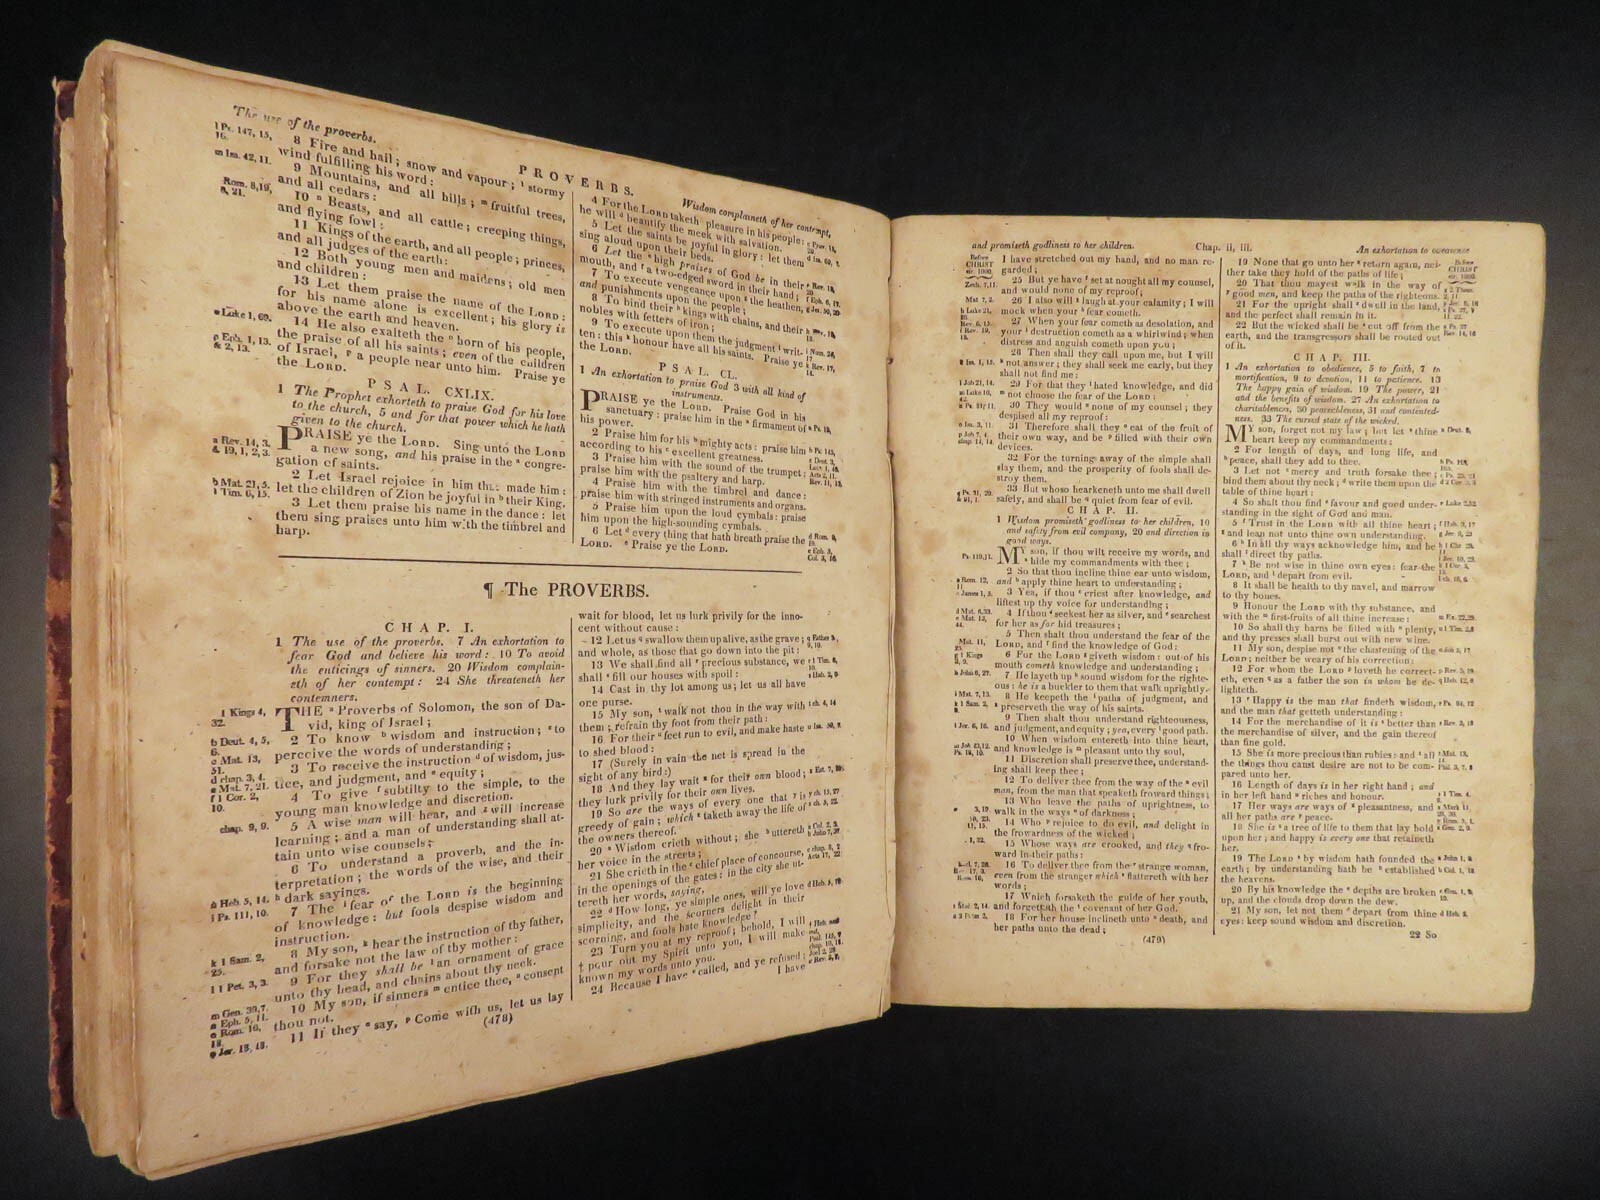 The use of the proverbs.
PROVERBS.
Wisdom complaineth of her contempt,
l Ps. 147, 15,
16.
m Isa. 42, 11.
Rom. 8, 19,
8, 21.
o Luke 1, 69.
p Eph. 1, 13.
& 2, 13.
8 Fire and hail; snow and vapour; l stormy
wind fulfilling his word:
9 Mountains, and all hills; m fruitful trees,
and all cedars:
10 n Beasts, and all cattle; creeping things,
and flying fowl:
11 Kings of the earth, and all people; princes,
and all judges of the earth:
12 Both young men and maidens; old men
and children:
13 Let them praise the name of the LORD:
for his name alone is excellent; his glory is
above the earth and heaven.
14 He also exalteth the o horn of his people,
the praise of all his saints; even of the children
of Israel, p a people near unto him. Praise ye
the LORD.
PSAL. CXLIX.
1 The Prophet exhorteth to praise God for his love
to the church, 5 and for that power which he hath
given to the church.
a Rev. 14, 3.
& 19, 1, 2, 3.
b Mat. 21, 5.
1 Tim. 6, 15.
PRAISE ye the LORD. Sing unto the LORD
a new song, and his praise in the a congre-
gation of saints.
2 Let Israel rejoice in him that made him:
let the children of Zion be joyful in b their King.
3 Let them praise his name in the dance: let
them sing praises unto him with the timbrel and
harp.
4 For the LORD taketh pleasure in his people:
he will d beautify the meek with salvation.
5 Let the saints be joyful in glory: let them
sing aloud upon their beds.
6 Let the e high praises of God be in their
mouth, and f a two-edged sword in their hand;
7 To execute vengeance upon g the heathen,
and punishments upon the people;
8 To bind their h kings with chains, and their
nobles with fetters of iron;
9 To execute upon them the judgment i writ-
ten: this k honour have all his saints. Praise ye
the LORD.
PSAL. CL.
1 An exhortation to praise God 3 with all kind of
instruments.
PRAISE ye the LORD. Praise God in his
sanctuary: praise him in the a firmament of
his power.
2 Praise him for his b mighty acts: praise him
according to his c excellent greatness.
3 Praise him with the sound of the trumpet:
praise him with the psaltery and harp.
4 Praise him with the timbrel and dance:
praise him with stringed instruments and organs.
5 Praise him upon the loud cymbals: praise
him upon the high-sounding cymbals.
6 Let d every thing that hath breath praise the
LORD. e Praise ye the LORD.
¶ The PROVERBS.
CHAP. I.
1 The use of the proverbs. 7 An exhortation to
fear God and believe his word: 10 To avoid
the enticings of sinners. 20 Wisdom complain-
eth of her contempt: 24 She threateneth her
contemners.
1 Kings 4,
32.
b Deut. 4, 5,
6.
c Mat. 13,
51.
d chap. 3, 4.
e Mat. 7, 21.
f 1 Cor. 2,
10.
chap. 9, 9.
h Heb. 5, 14.
i Ps. 111, 10.
k 1 Sam. 2,
25.
l 1 Pet. 3, 3.
m Gen. 39, 7.
n Eph. 5, 11.
o Rom. 16,
18.
p Jer. 18, 18.
THE a Proverbs of Solomon, the son of Da-
vid, king of Israel;
2 To know b wisdom and instruction; c to
perceive the words of understanding;
3 To receive the instruction d of wisdom, jus-
tice, and judgment, and e equity;
4 To give f subtilty to the simple, to the
young man knowledge and discretion.
5 A wise man will hear, and g will increase
learning; and a man of understanding shall at-
tain unto wise counsels;
6 To understand a proverb, and the in-
terpretation; the words of the wise, and their
h dark sayings.
7 The i fear of the LORD is the beginning
of knowledge: but fools despise wisdom and
instruction.
8 My son, k hear the instruction of thy father,
and forsake not the law of thy mother:
9 For they shall be l an ornament of grace
unto thy head, and chains about thy neck.
10 My son, if sinners m entice thee, n consent
thou not.
11 If they o say, p Come with us, let us lay
(478)
wait for blood, let us lurk privily for the inno-
cent without cause:
12 Let us q swallow them up alive, as the grave;
and whole, as those that go down into the pit:
13 We shall find all r precious substance, we
shall s fill our houses with spoil:
14 Cast in thy lot among us; let us all have
one purse.
15 My son, t walk not thou in the way with
them; refrain thy foot from their path:
16 For their u feet run to evil, and make haste
to shed blood:
17 (Surely in vain the net is spread in the
sight of any bird:)
18 And they lay wait x for their own blood;
they lurk privily for their own lives.
19 So are the ways of every one that y is
greedy of gain; which z taketh away the life of
the owners thereof.
20 a Wisdom crieth without; she b uttereth
her voice in the streets;
21 She crieth in the c chief place of concourse,
in the openings of the gates: in the city she ut-
tereth her words, saying,
22 d How long, ye simple ones, will ye love
simplicity, and the scorners delight in their
scorning, and fools hate knowledge?
23 Turn you at my reproof; behold, I will
† pour out my Spirit unto you, I will make
known my words unto you.
24 Because I have e called, and ye refused;
I have
and promiseth godliness to her children.
Chap. ii, iii.
An exhortation to obedience
Before
CHRIST
cir. 1000.
Zech. 7, 11.
I have stretched out my hand, and no man re-
garded;
25 But ye have f set at nought all my counsel,
and would none of my reproof;
26 I also will g laugh at your calamity; I will
mock when your h fear cometh.
27 When your fear cometh as desolation, and
your i destruction cometh as a whirlwind; when
distress and anguish cometh upon you;
28 Then shall they call upon me, but I will
k not answer; they shall seek me early, but they
shall not find me:
29 For that they l hated knowledge, and did
m not choose the fear of the LORD:
30 They would n none of my counsel; they
despised all my reproof:
31 Therefore shall they o eat of the fruit of
their own way, and be p filled with their own
devices.
32 For the turning away of the simple shall
slay them, and the prosperity of fools shall de-
stroy them.
33 But whoso hearkeneth unto me shall dwell
safely, and shall be q quiet from fear of evil.
CHAP. II.
1 Wisdom promiseth godliness to her children, 10
and safety from evil company, 20 and direction in
good ways.
MY son, if thou wilt receive my words, and
hide my commandments with thee;
2 So that thou incline thine ear unto wisdom,
and b apply thine heart to understanding;
3 Yea, if thou c criest after knowledge, and
liftest up thy voice for understanding;
4 If thou d seekest her as silver, and e searchest
for her as for hid treasures;
5 Then shalt thou understand the fear of the
LORD, and f find the knowledge of God:
6 For the LORD g giveth wisdom: out of his
mouth cometh knowledge and understanding;
7 He layeth up h sound wisdom for the righte-
ous: he is a buckler to them that walk uprightly.
8 He keepeth the i paths of judgment, and
k preserveth the way of his saints.
9 Then shalt thou understand righteousness,
and judgment, and equity; yea, every l good path.
10 When wisdom entereth into thine heart,
and knowledge is m pleasant unto thy soul,
11 Discretion shall preserve thee, understand-
ing shall keep thee;
12 To deliver thee from the way of the n evil
man, from the man that speaketh froward things;
13 Who leave the paths of uprightness, to
walk in the ways o of darkness;
14 Who p rejoice to do evil, and delight in
the frowardness of the wicked;
15 Whose ways are crooked, and they q fro-
ward in their paths:
16 To deliver thee from the r strange woman,
even from the stranger which s flattereth with her
words;
17 Which forsaketh the guide of her youth,
and forgetteth the t covenant of her God.
18 For her house inclineth unto u death, and
her paths unto the dead;
(479)
19 None that go unto her x return again, nei-
ther take they hold of the paths of life;
20 That thou mayest walk in the way of
y good men, and keep the paths of the righteous.
21 For the upright shall z dwell in the land,
and the perfect shall remain in it.
22 But the wicked shall a cut off from the
earth, and the transgressors shall be rooted out
of it.
CHAP. III.
1 An exhortation to obedience, 5 to faith, 7 to
mortification, 9 to devotion, 11 to patience. 13
The happy gain of wisdom. 19 The power, 21
and the benefits of wisdom. 27 An exhortation to
charitableness, 30 peaceableness, 31 and contented-
ness. 33 The cursed state of the wicked.
MY son, forget not my law; but let a thine
heart keep my commandments:
2 For length of days, and long life, and
b peace, shall they add to thee.
3 Let not c mercy and truth forsake thee;
bind them about thy neck; d write them upon the
table of thine heart:
4 So shalt thou find e favour and good under-
standing in the sight of God and man.
5 f Trust in the LORD with all thine heart;
g and lean not unto thine own understanding.
6 h In all thy ways acknowledge him, and he
shall i direct thy paths.
7 k Be not wise in thine own eyes: fear the
LORD, and l depart from evil.
8 It shall be health to thy navel, and marrow
to thy bones.
9 Honour the LORD with thy substance, and
with the m first-fruits of all thine increase:
10 So shall thy barns be filled with n plenty,
and thy presses shall burst out with new wine.
11 My son, despise not o the chastening of the
LORD; neither be weary of his correction:
12 For whom the LORD p loveth he correct-
eth, even q as a father the son in whom he de-
lighteth.
13 r Happy is the man that findeth wisdom,
and the man that getteth understanding:
14 For the merchandise of it is s better than
the merchandise of silver, and the gain thereof
than fine gold.
15 She is more precious than rubies: and t all
the things thou canst desire are not to be com-
pared unto her.
16 Length of days is in her right hand; and
in her left hand u riches and honour.
17 Her ways are ways of x pleasantness, and
all her paths are y peace.
18 She is z a tree of life to them that lay hold
upon her; and happy is every one that retaineth
her.
19 The LORD a by wisdom hath founded the
earth; by understanding hath he b established
the heavens.
20 By his knowledge the c depths are broken
up, and the clouds drop down the dew.
21 My son, let not them d depart from thine
eyes: keep sound wisdom and discretion.
22 So